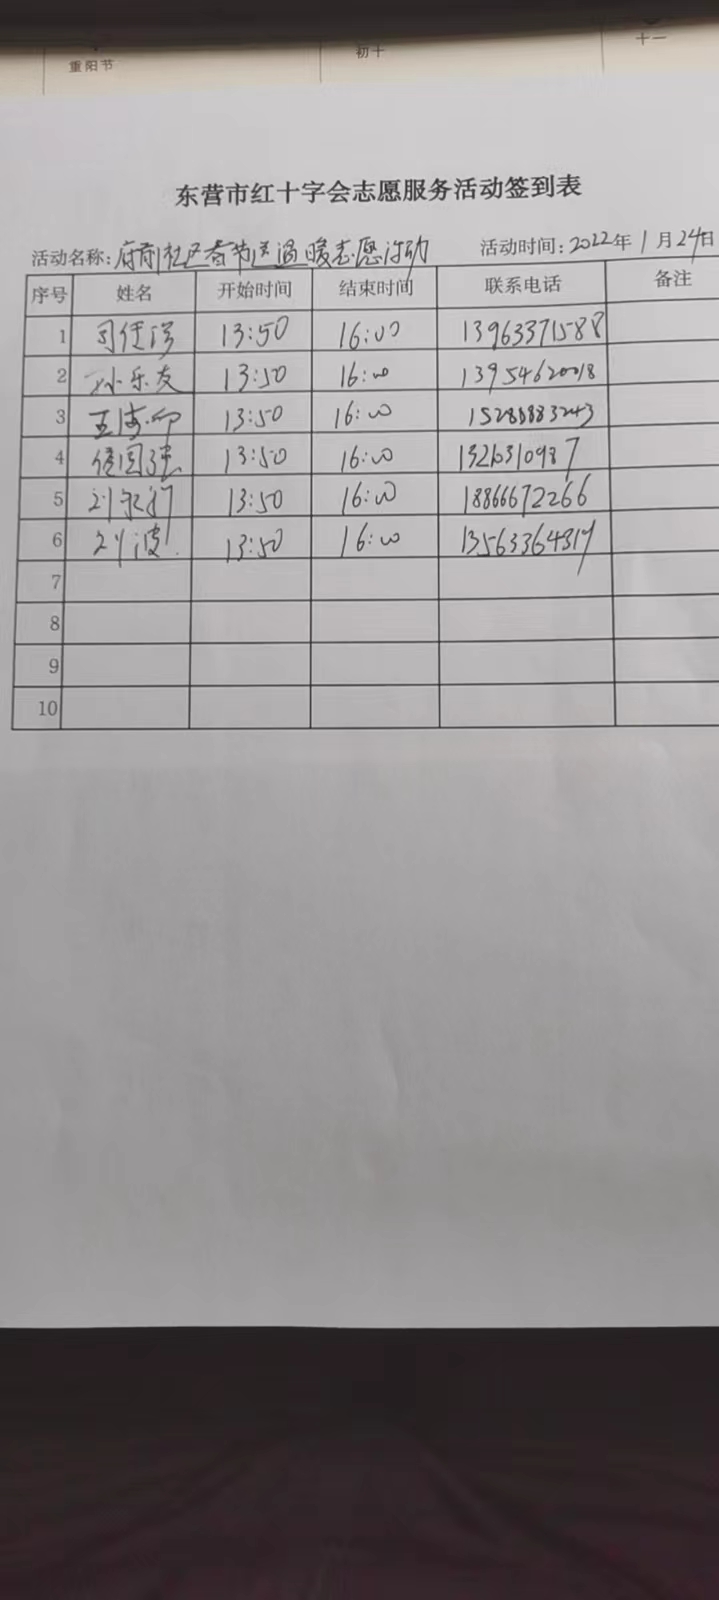 重阳节 初十 十一
东营市红十字会志愿服务活动签到表
活动名称:府前社区春节送温暖志愿活动 活动时间:2022年1月24日
序号 姓名 开始时间 结束时间 联系电话 备注
1 13:50 16:00 13963371588
2 孙乐友 13:50 16:00 13954620018
3 13:50 16:00 15288883243
4 13:50 16:00
5 13:50 16:00 18866672266
6 刘波 13:50 16:00
7
8
9
10